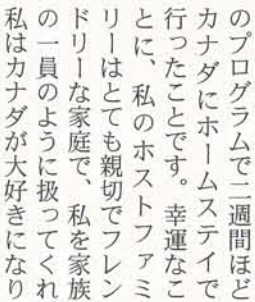 のプログラムで二週間ほど
カナダにホームステイで
行ったことです。幸運なこ
とに、私のホストファミ
リーはとても親切でフレン
ドリーな家庭で、私を家族
の一員のように扱ってくれ
私はカナダが大好きになり